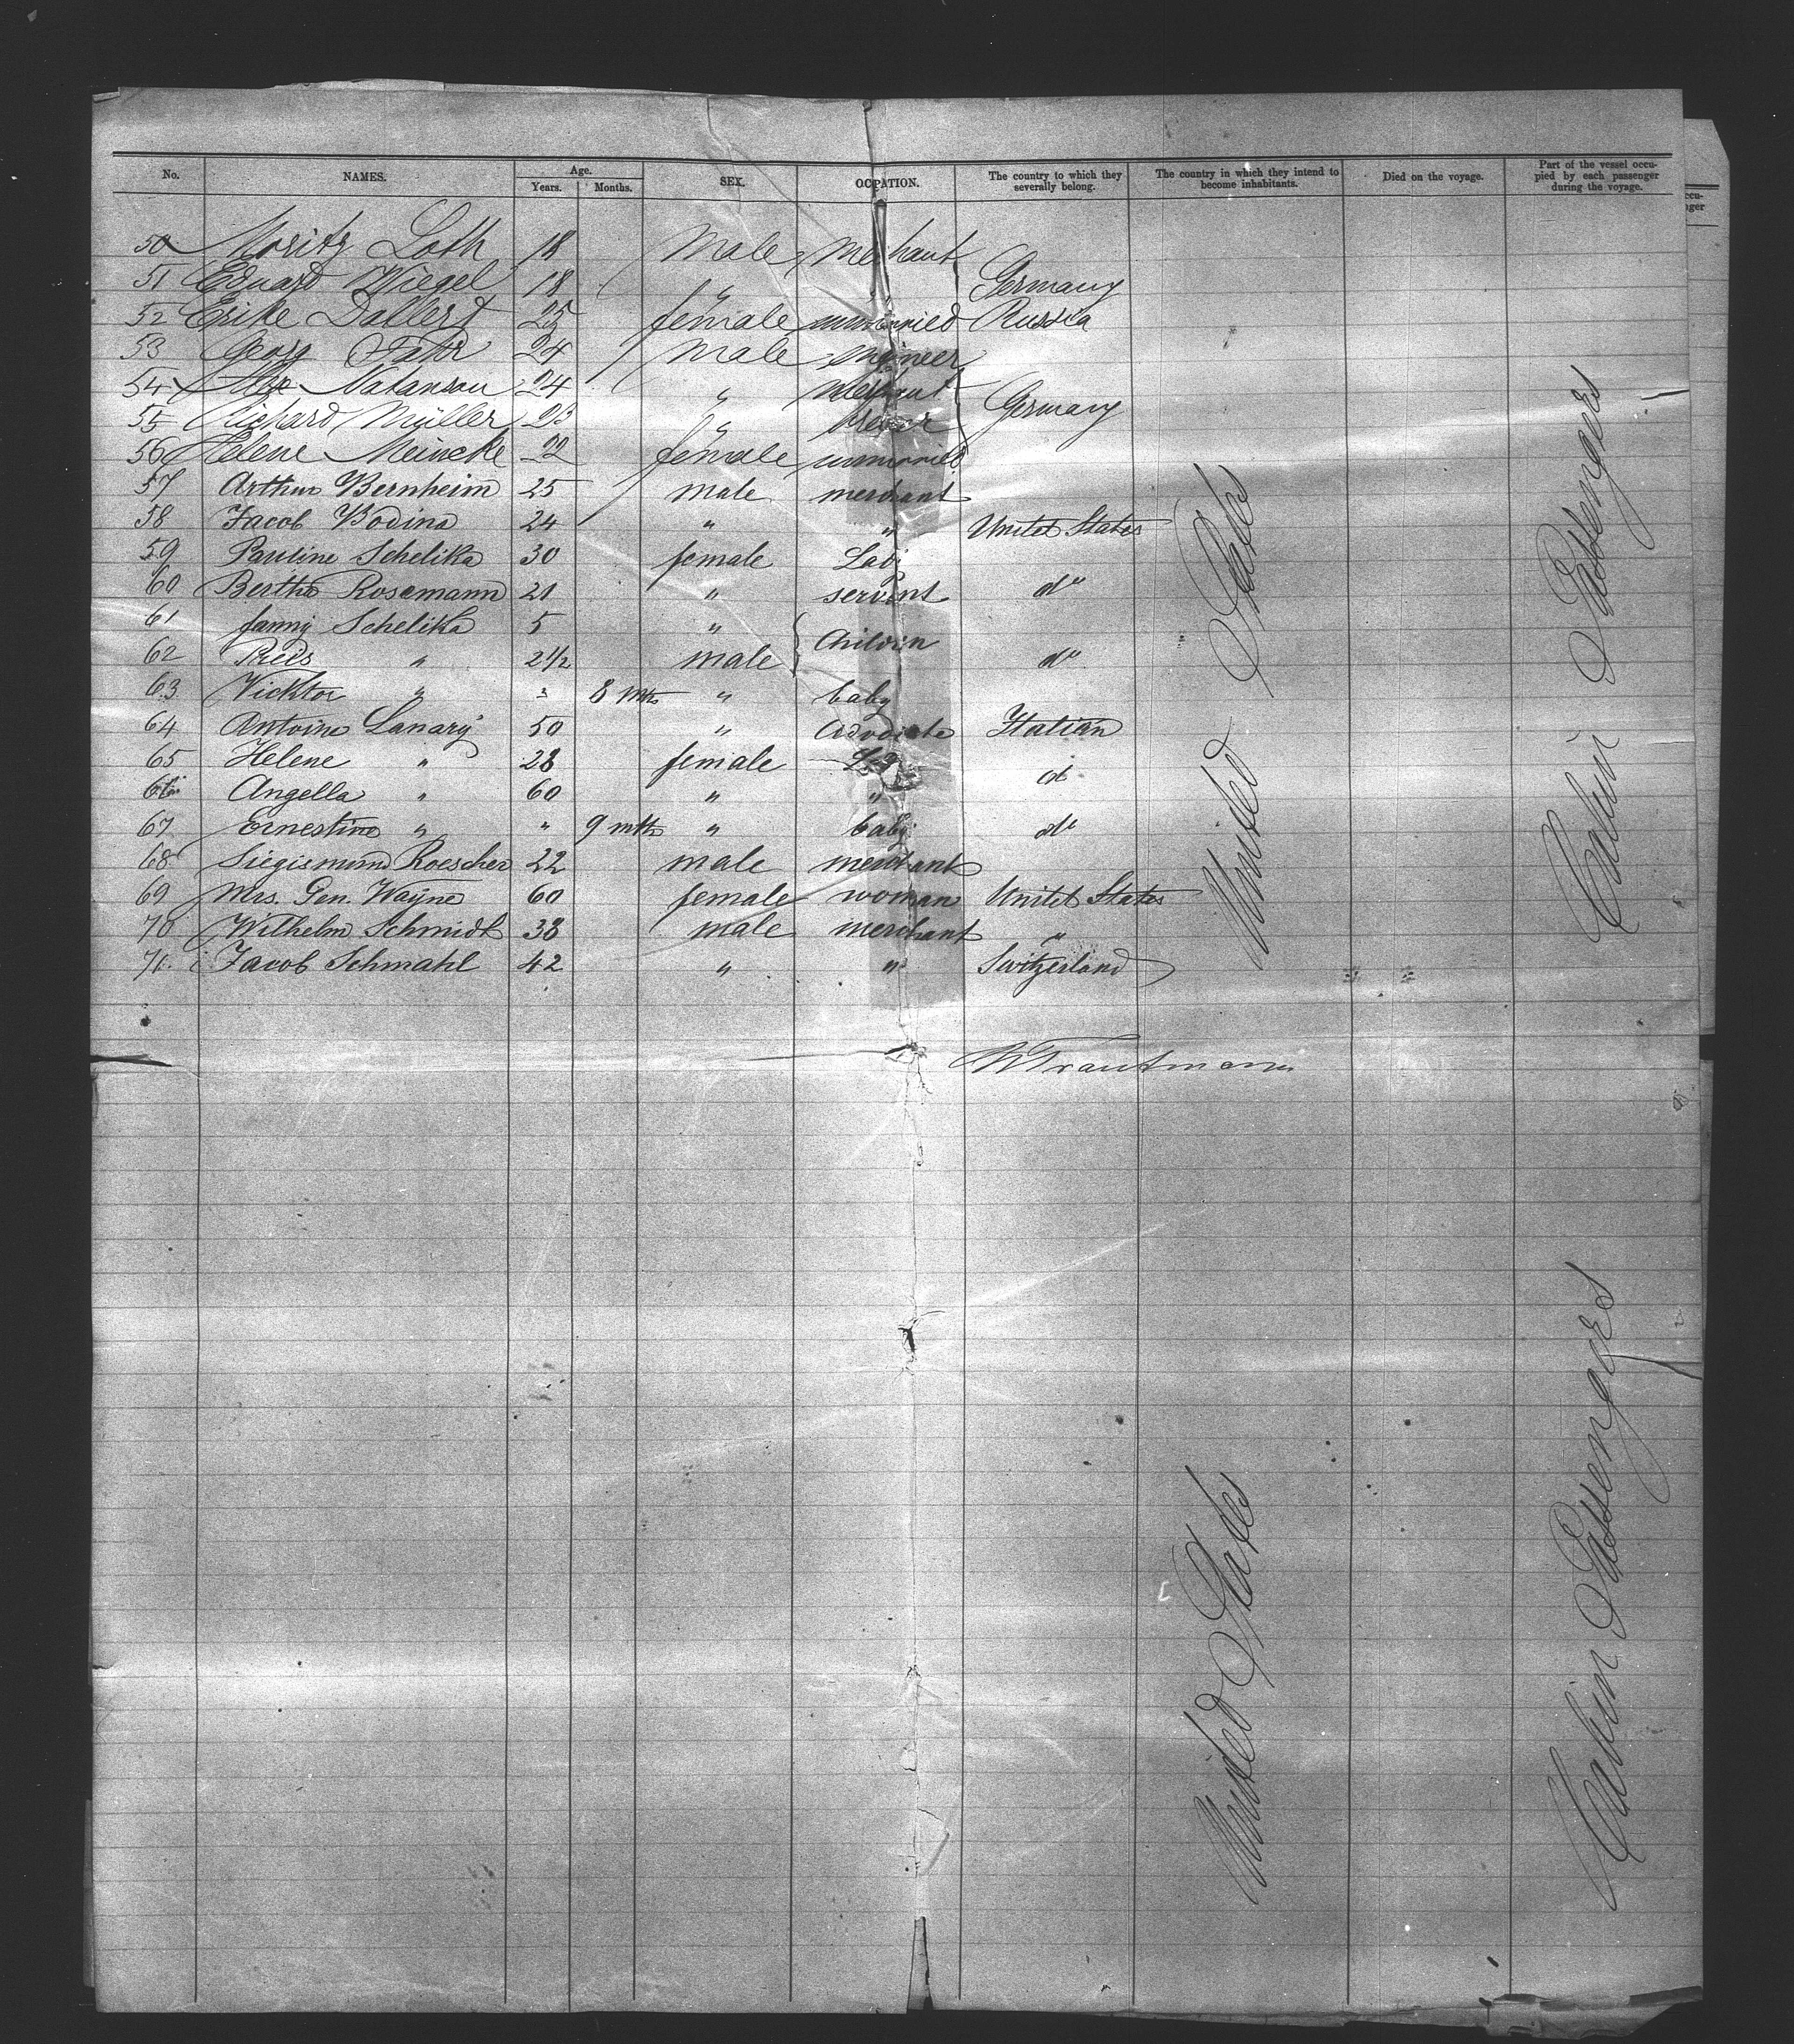 No. NAMES. Age. Years. Months. SEX. OCPATION. The country to which they severally belong. The country in which they intend to become inhabitants. Died on the voyage. Part of the vessel occupied by each passenger during the voyage.
50 Moritz Loth 18 Male Merchant
51 Eduard Wiegel 18 " " Germany
52 Erike Dallert 25 female unmarried Russia
53 Georg Fahr 24 Male engineer
54 Alex Natanson 24 " Merchant
55 Richard Müller 23 " Germany
56 Helene Meincke 22 female unmarried
57 Arthur Bernheim 25 male merchant
58 Jacob Bodine 24 " " Unitet States
59 Pauline Schelika 30 female Lady
60 Bertha Rosemann 21 " servant do
61 Fanny Schelika 5 "
62 " 2 1/2 male Children do
63 Vicktor " " 8 mths " baby
64 Antoine Lanary 50 " Advocate Italian
65 Helene " 28 female Lady d
66 Angella " 60 " "
67 Ernestine " " 9 mths " baby do
68 Siegismund Roescher 22 male merchant
69 Mrs. Gen. Wayne 60 female woman Unitet States
70 Wilhelm Schmidt 38 male merchant "
71. Jacob Schmahl 42 " " Switzerland
United States
Cabin Passengers
W Trautmann
United States
Cabin Passengers